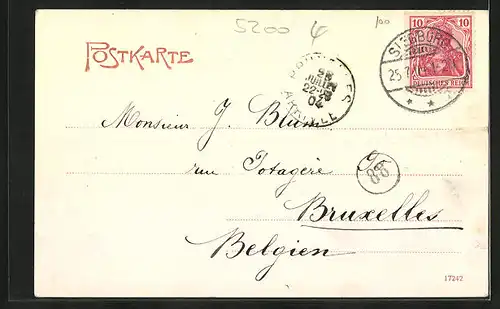 5200 4 100
10 10
DEUTSCHES REICH
SIEGBURG
25.7
POSTKARTE
BRUXELLES
25
JUIL
22-23
04
Monsieur J. Blum
rue Potagère
88
Bruxelles
Belgien
17242